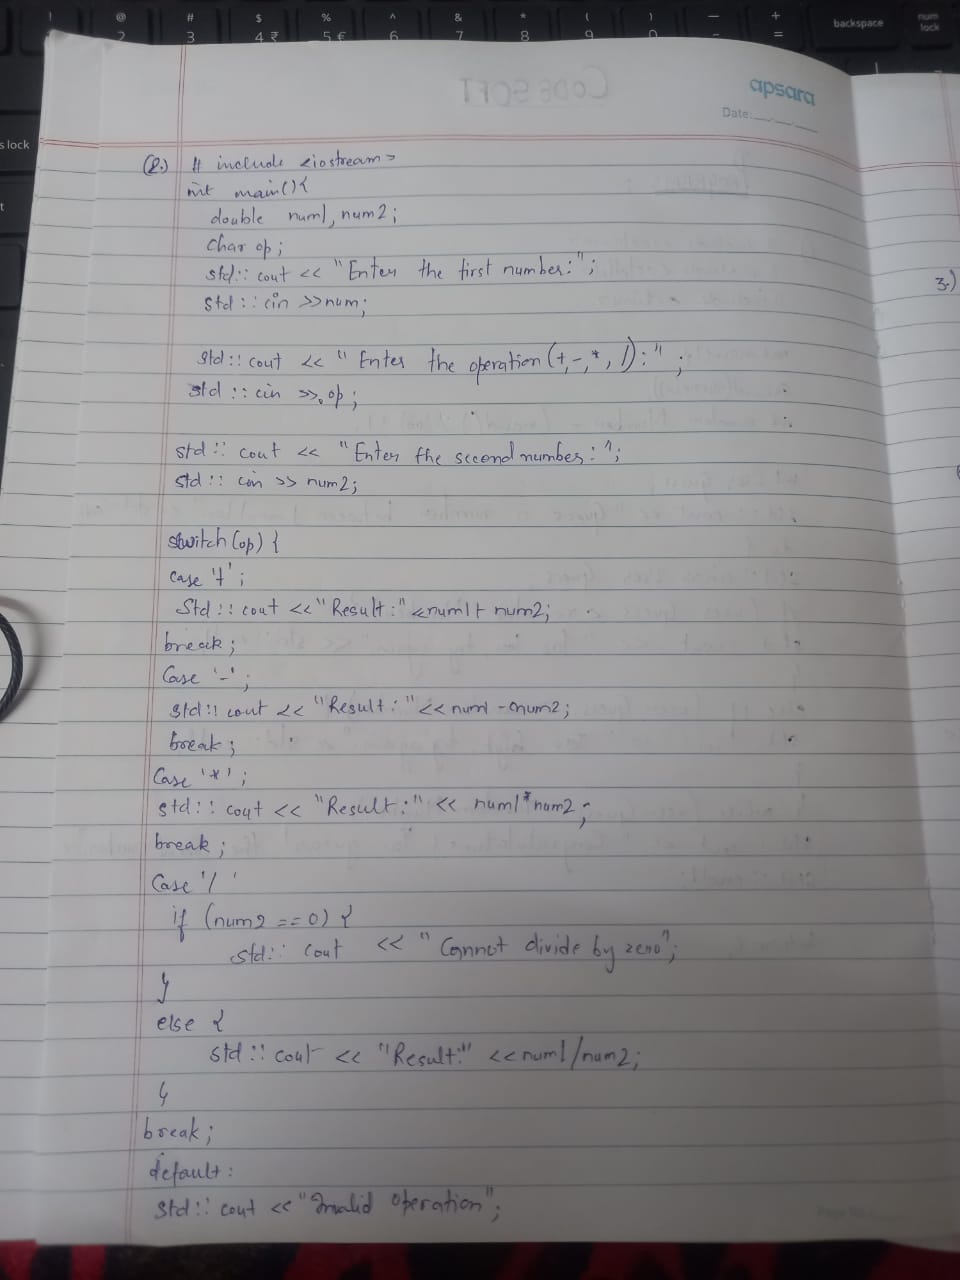 ! @ # $ % ^ & * ( ) — + backspace num lock
2 3 4 ₹ 5 € 6 7 8 9 0 - =
s lock
t
CODE SOFT
apsara
Date:
(2.) # include <iostream>
int main(){
double num1, num2;
char op;
std:: cout << "Enter the first number:";
std:: cin >>num;
3.)
std:: cout << "Enter the operation (+,-,*, /):" ;
std :: cin >> op;
std :: cout << "Enter the second number:";
std :: cin >> num2;
switch (op) {
case '+' ;
Std :: cout <<"Result:" <num1+ num2;
break;
Case '-' ;
std:: cout << "Result:" << num1 -num2;
break;
Case '*' ;
std:: cout << "Result:" << num1*num2 ;
break;
Case '/ '
if (num2 == 0) {
std:: cout << " Cannot divide by zero";
}
else {
std :: cout << "Result:" << num1/num2;
}
break;
default:
std:: cout << "Invalid operation";